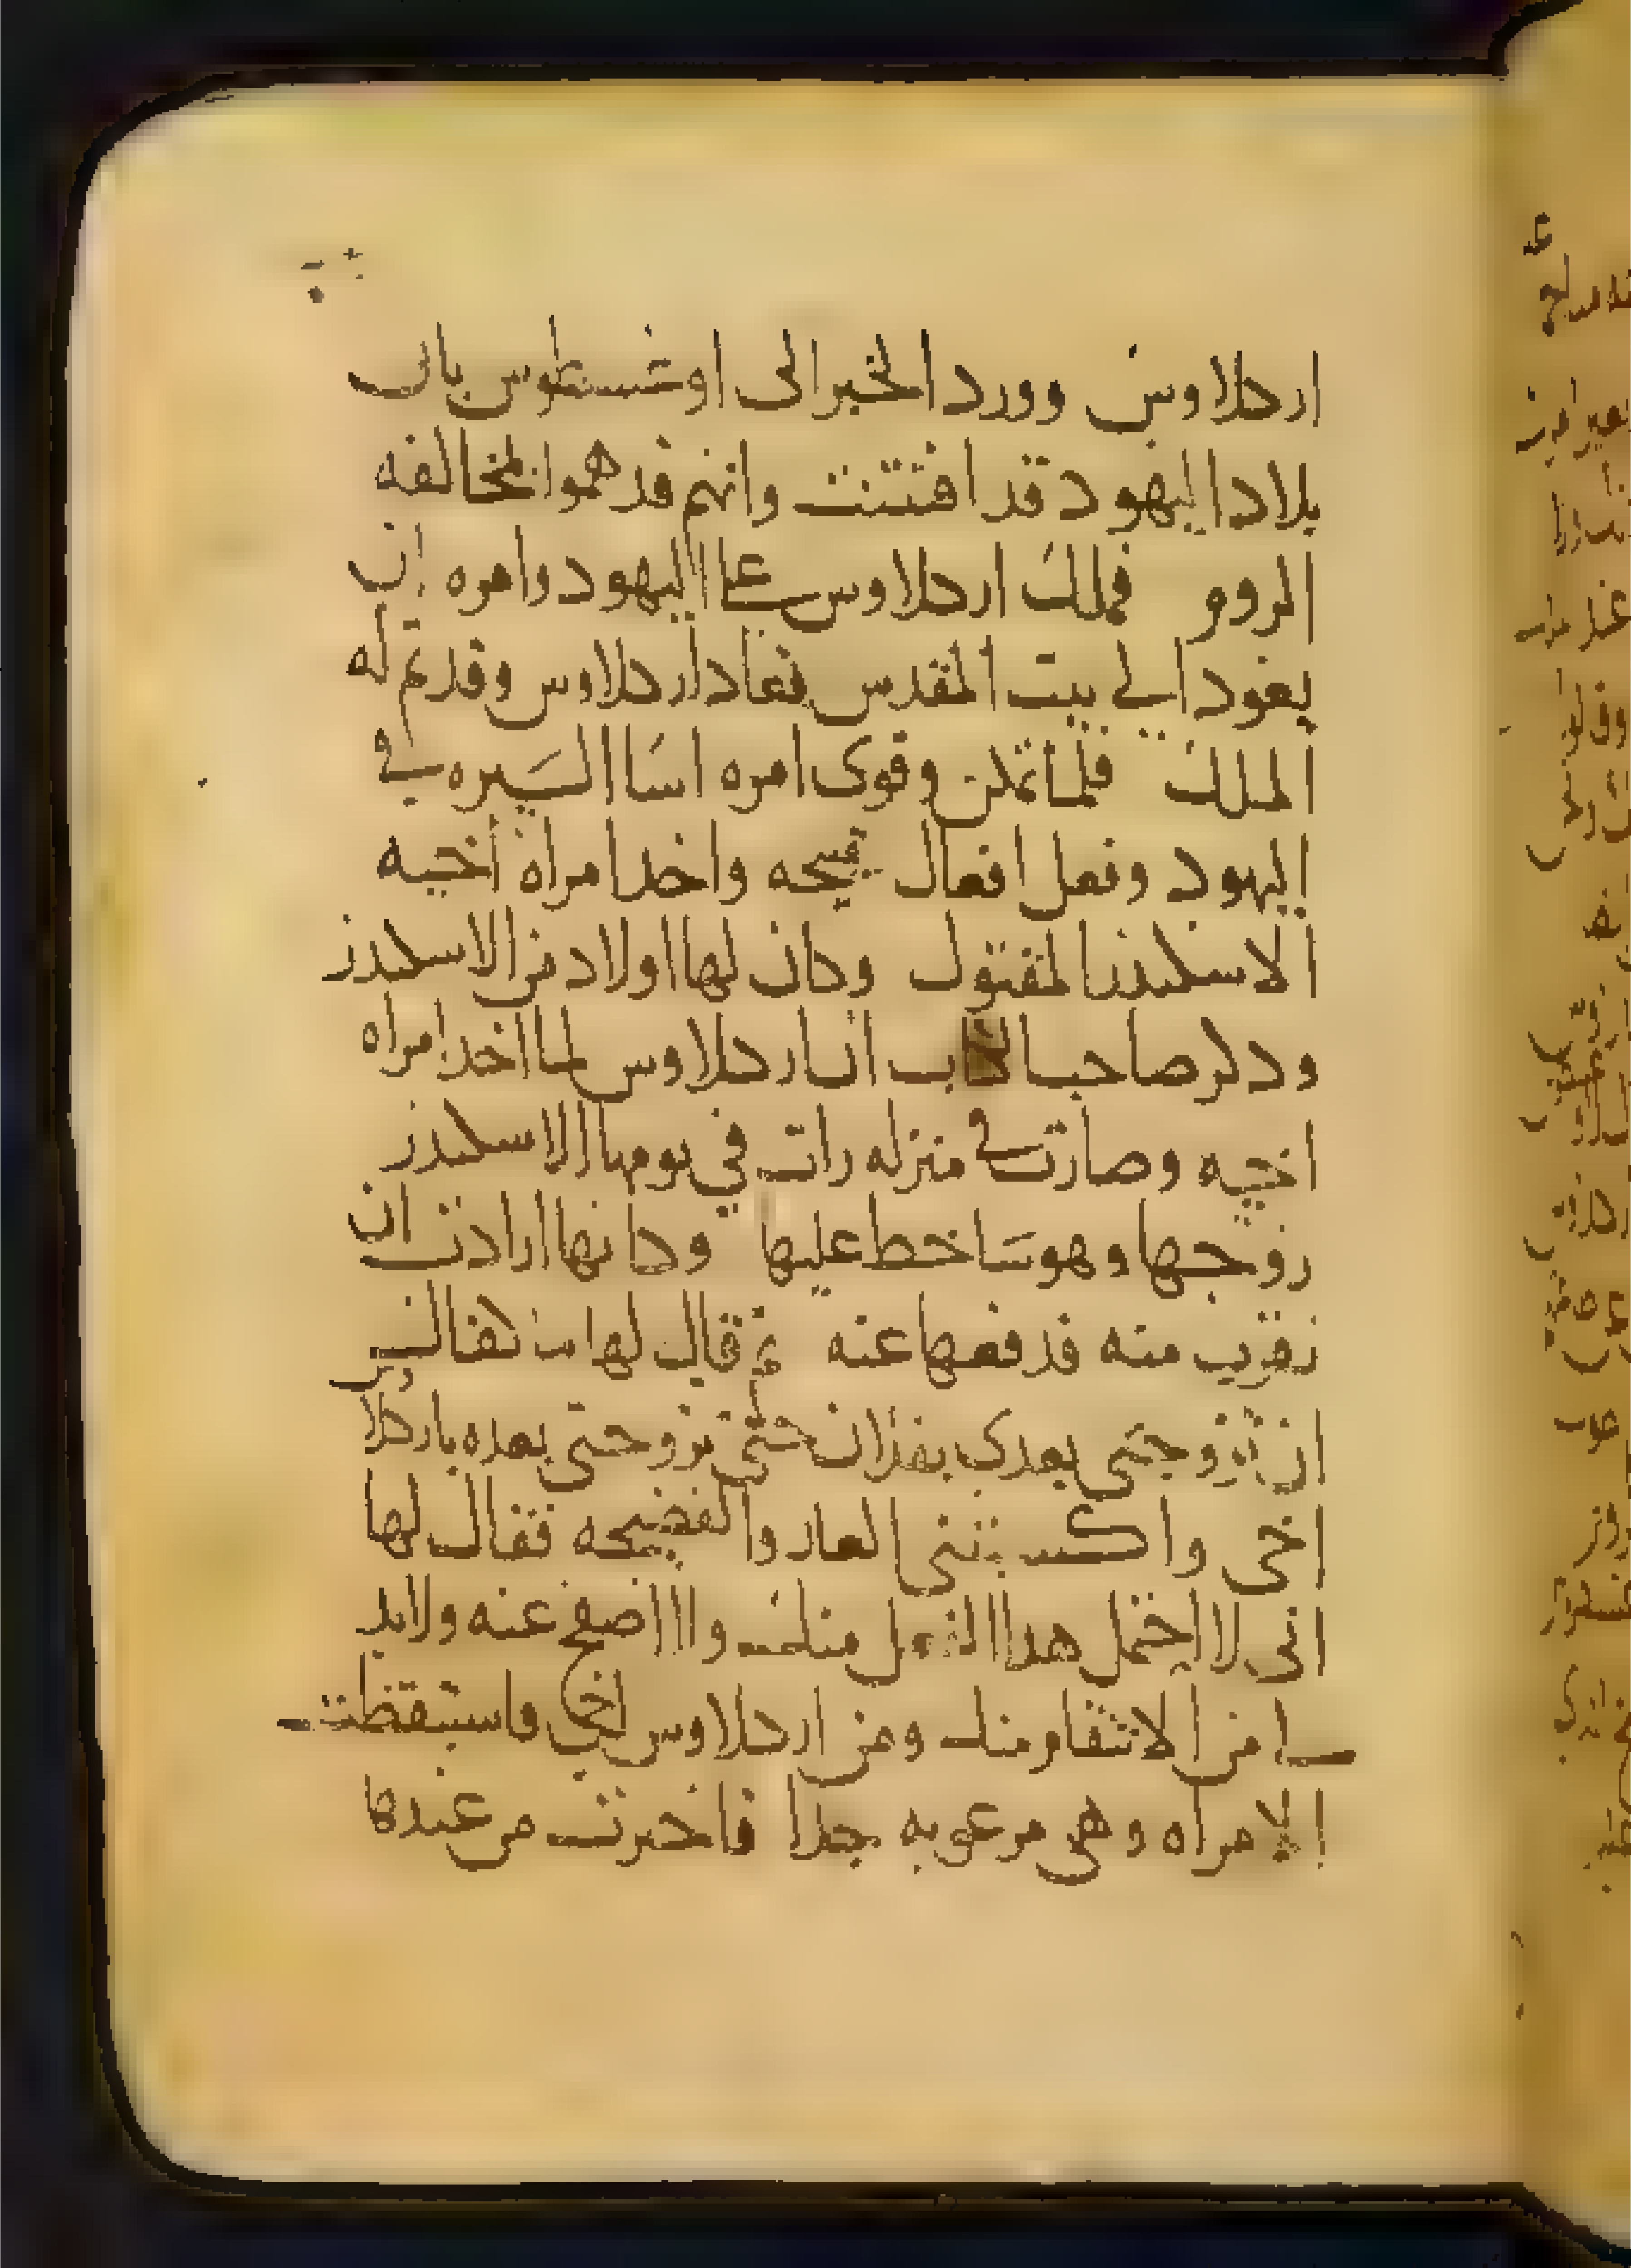 اردلاوس وورد الخبر الى اوغسطوس بان
بلاد اليهود قد افتتنت وانهم قد هموا بمخالفه
الروم فملك اردلاوس على اليهود وامره ان
يعود الي بيت المقدس فعاد اردلاوس وقد تم له
الملك فلما تمكن وقوى امره اسا السيره في
اليهود وفعل افعال قبيحه واخد امراه أخيه
الاسكندر المقتول وكان لها اولاد من الاسكندر
ودكر صاحب الكتاب ان اردلاوس لما اخد امراه
اخيه وصارت في منزله رات في نومها الاسكندر
زوجها وهو ساخط عليها وكانها ارادت ان
تقرب منه فدفعها عنه ثم قال لها ما كفاك
ان تزوجتى بعدى بفلان حتى تزوجتى بعده باركلا
اخى واكسبتنى العار والفضيحه فقال لها
انى لا احتمل هدا الفعل منك ولا اصفح عنه ولابد
لى من الانتقام منك ومن اردلاوس اخى فاستيقظت
الامراه وهى مرعوبه جدا فاخبرت من عندها